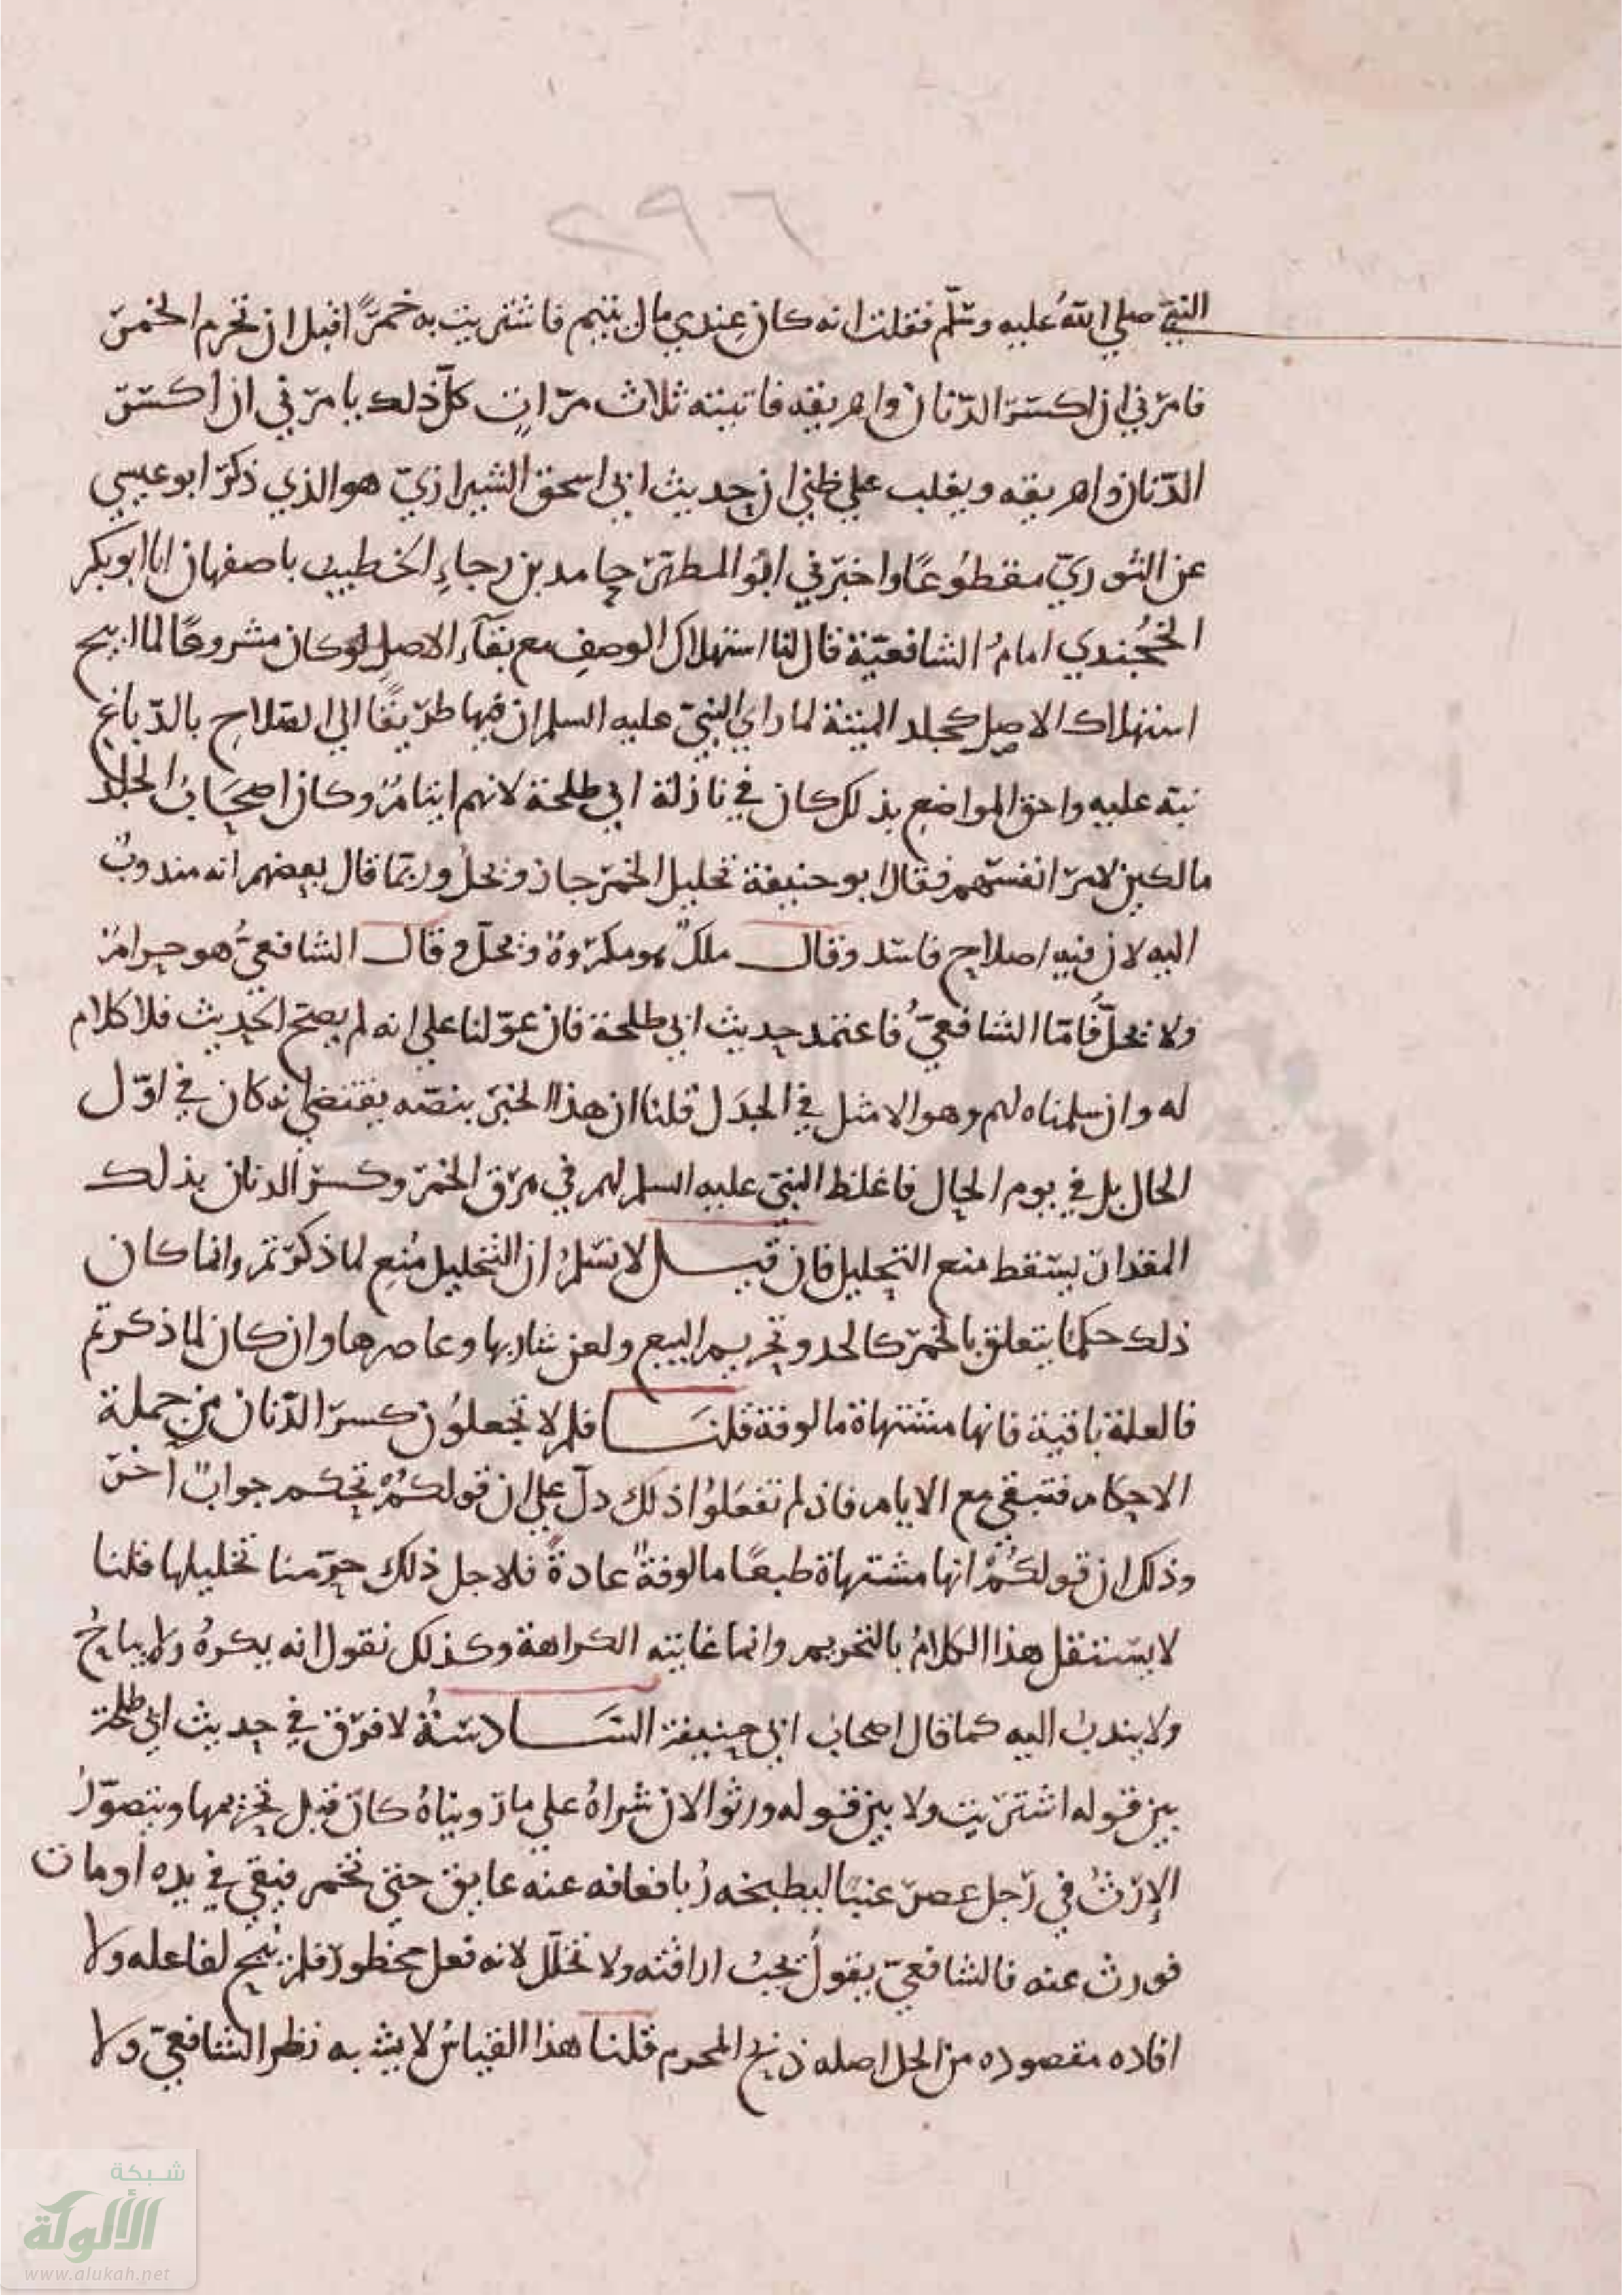 ٢٩٦
النبيّ صلي الله عليه وسلّم فقلت انه كان عندي مال يتيم فاشتريت به خمرًا قبل ان تحرم الخمر
فامرني ان اكسر الدّنان واهريقه فاتيته ثلاث مرّاتٍ كلّ ذلك يامرني ان اكسر
الدّنان واهريقه ويغلب علي ظني ان حديث ابي اسحق الشيرازيّ هو الذي ذكر ابو عيسي
عن الثوريّ مقطوعًا واخبرني ابو المطهر حامد بن رجاءِ الخطيب باصفهان انا ابو بكر
الخجُندي امامُ الشافعيّة قال لنا استهلاك الوصفِ مع بقآء الاصلِ لو كان مشروعًا لما ابيح
استهلاك الاصل كجلد الميتة لما راي النبيّ عليه السلم ان فيها طريقًا الي الصّلاحِ بالدّباغ
نبّه عليه واحق المواضع بذلك كان في نازلة ابي طلحة لانهم ايتامٌ وكان اصحابُ الجلد
مالكين لامر انفسهم فقال ابو حنيفة تخليل الخمر جائز وتحلّ وربّما قال بعضهم انه مندوبٌ
اليه لان فيه اصلاح فاسد وقال ملكٌ هو مكروهٌ وتحلّ وقال الشافعيُّ هو حرامٌ
ولا تحلّ فأمّا الشافعيُّ فاعتمد حديث ابي طلحة فان عوّلنا علي انه لم يصح الحديث فلا كلام
له وان سلمناه لهم وهو الامثل في الجدَل قلنا ان هذا الخبر بنصّه يقتضي انه كان في اوّل
الحال بل في يوم الحال فاغلظ النبيّ عليه السلم لهم في هرق الخمر وكسر الدنان بذلك
المقدار يسقط منع التخليل فان قيل لا نسلمُ ان التخليل مُنع لما ذكرتم وانما كان
ذلك حكمًا يتعلق بالخمر كالحد وتحريم البيع ولعن شاربها وعاصرها وان كان لما ذكرتم
فالعلة باقية فانها مشتهاة مالوفة قلنا فلم لا تجعلون كسر الدّنان من جملة
الاحكام فتبقي مع الايام فان لم تفعلوا ذلك دلّ علي ان قولكمْ تحكم جوابٌ آخر
وذلك ان قولكُمْ انها مشتهاة طبعًا مالوفةً عادةً فلاجل ذلك حرّمنا تخليلها قلنا
لا يستقل هذا الكلامُ بالتحريم وانما غايته الكراهة وكذلك نقول انه يكرهُ ولا يباحُ
ولا يندب اليه كما قال اصحاب ابي حنيفة السادسةُ لا فرق في حديث ابي طلحة
بين قوله اشتريت ولا بين قوله ورثوا لان شراهُ علي ما رويناهُ كان قبل تحريمها ويتصوّرُ
الإرثُ في رجل عصر عنبًا ليطبخه رُبا فعاقه عنه عايق حتي تخمر فبقي في يده او مات
فورث عنه فالشافعيّ يقولُ تجبُ اراقته ولا تخلّل لانه فعل محظور فلم يُبح لفاعله ولا
افاده مقصوده من الحل اصله ذبح المحرم قلنا هذا القياسُ لا يشبه نظر الشافعيّ ولا
شبكة
الألوكة
www.alukah.net